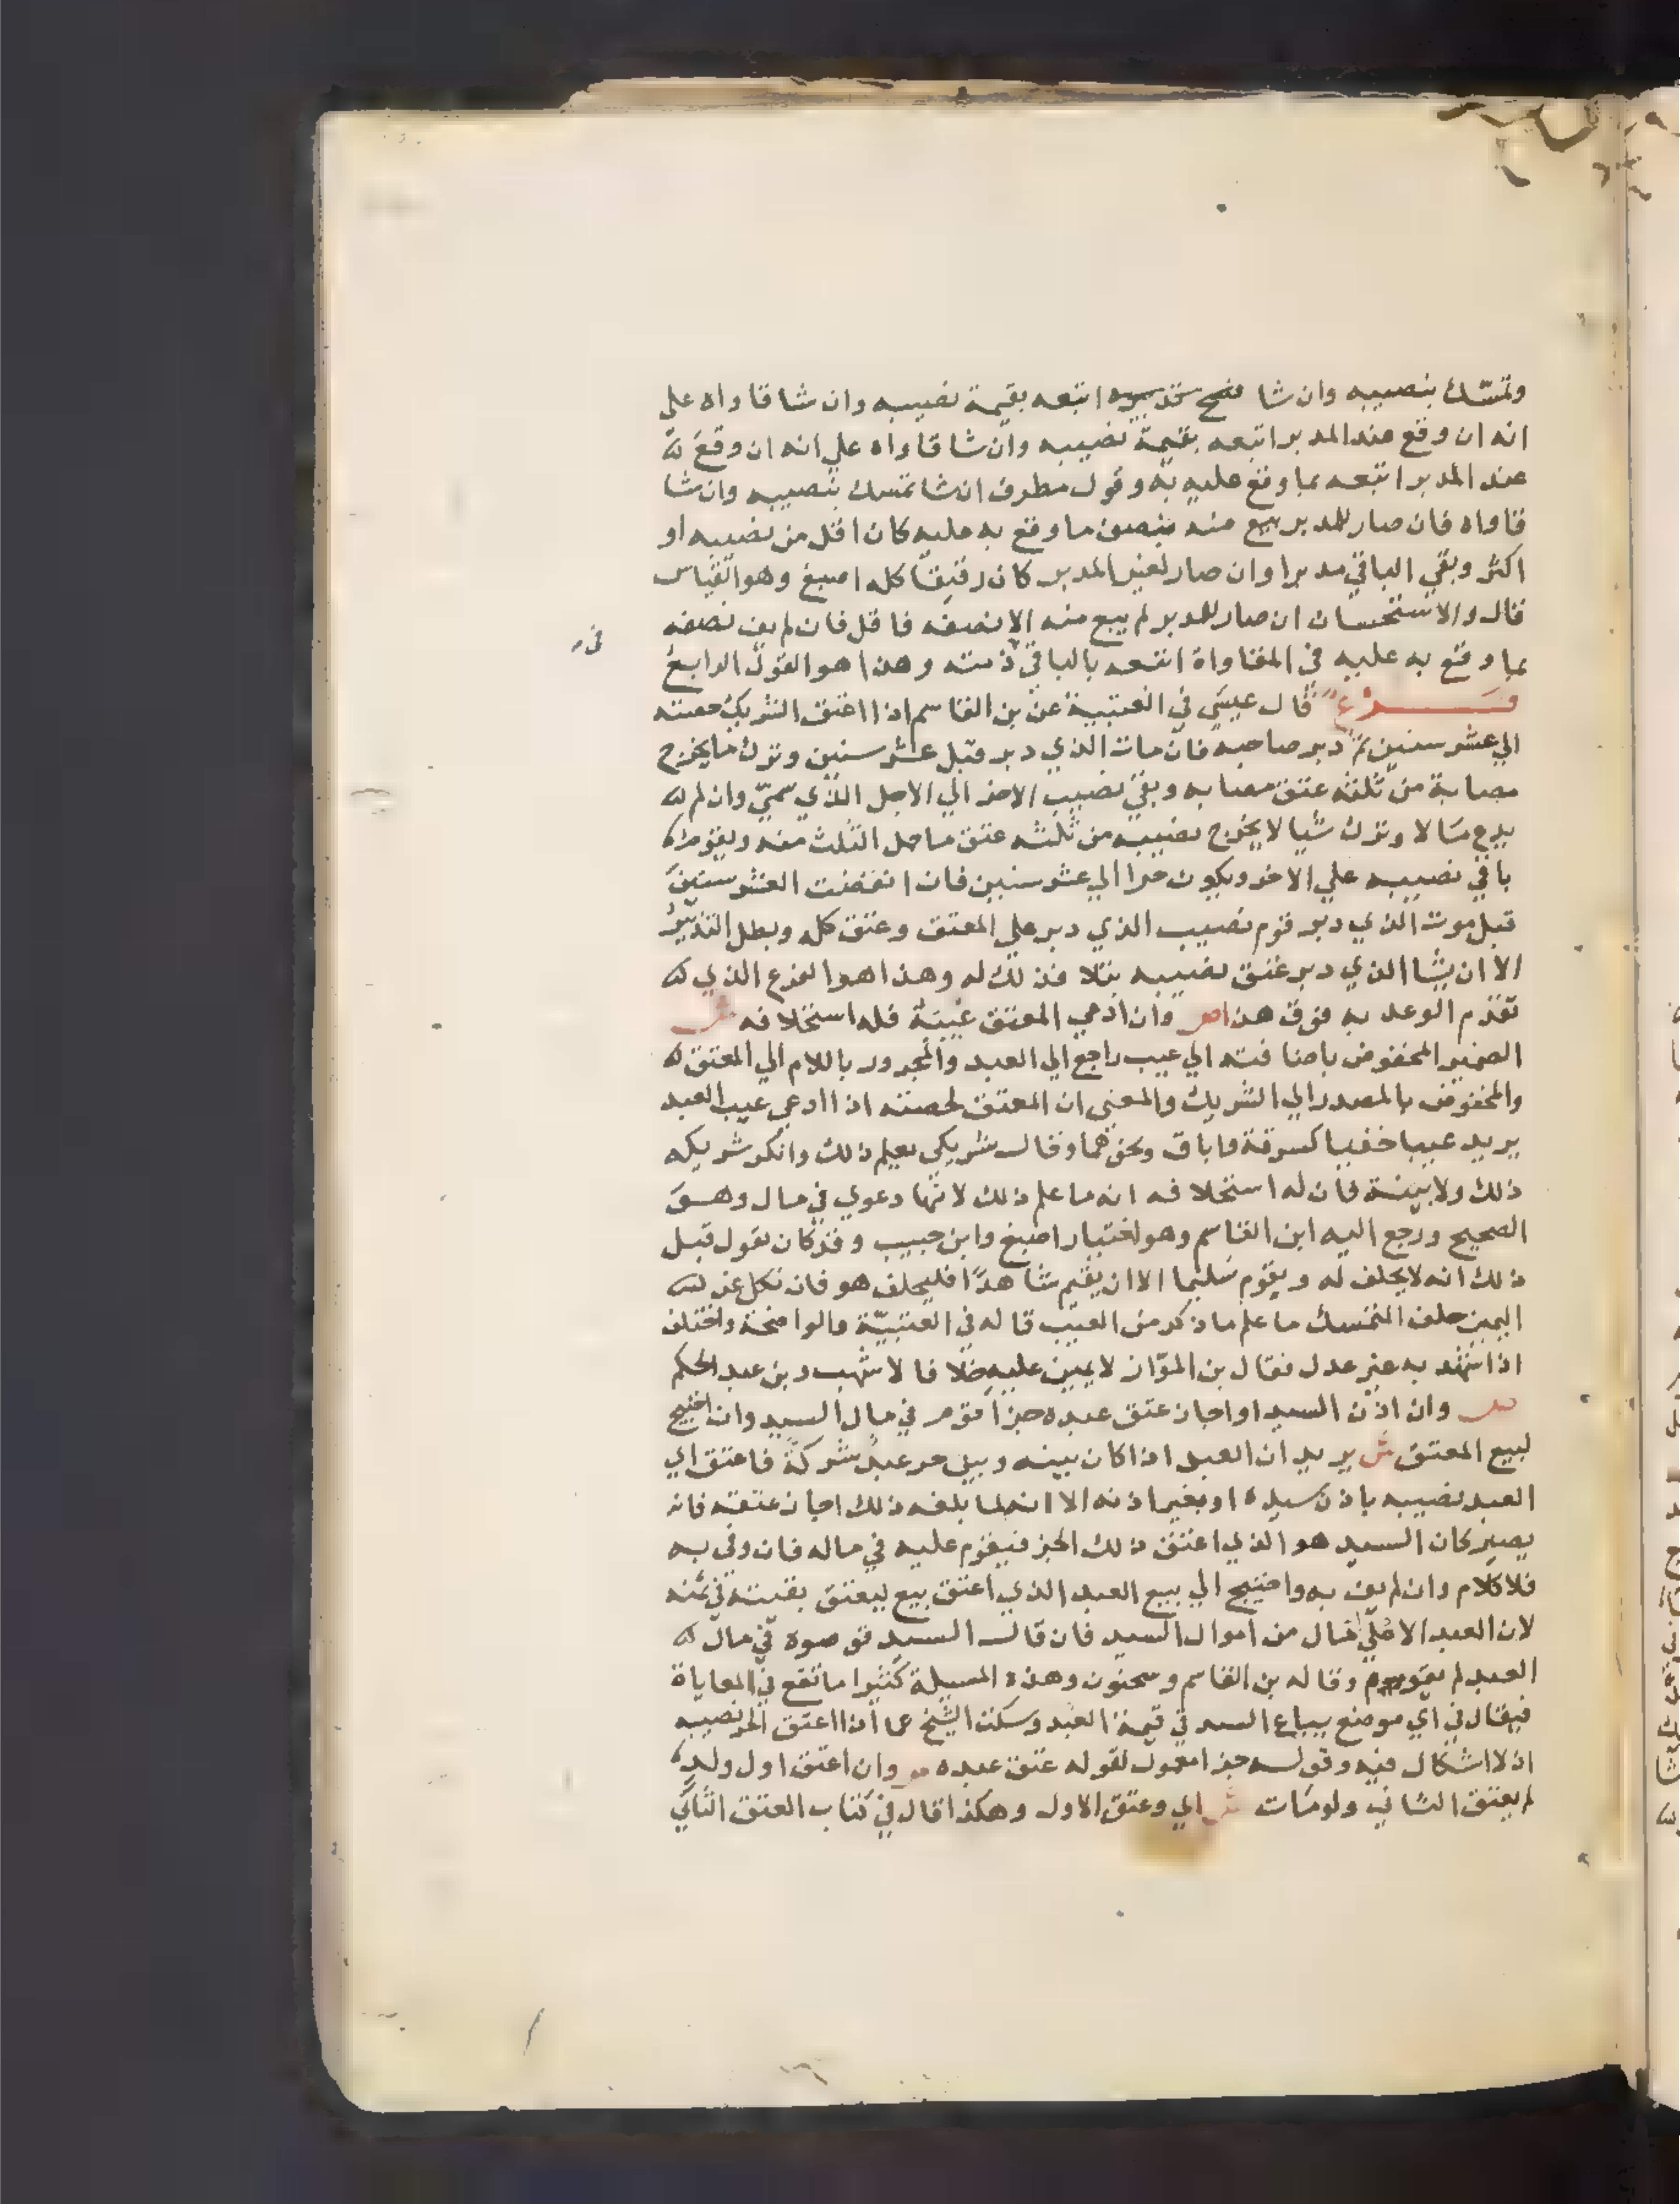 وتمسّك بنصيبه وان شا فسخ تدبيره اتبعه بقيمة نصيبه وان شا قاواه علي
انه ان وقع عند المدبر اتبعه بقيمة نصيبه وان شا قاواه علي انه ان وقع
عند المدبر اتبعه بما وقع عليه به وقول مطرف ان شا تمسك بنصيبه وان شا
قاواه فان صار للمدبر بيع منه بنصف ما وقع به عليه كان اقل من نصيبه او
اكثر وبقي الباقي مدبرا وان صار لغير المدبر كان رقيقا كله اصبغ وهو القياس
قال والاستحسان ان صار للمدبر لم يبع منه الا نصفه فاقل فان لم يف نصفه
بما وقع به عليه في المقاواة اتبعه بالباقي ذمته وهذا هو القول الرابع
فرع قال عيسي في العتبية عن بن القاسم اذا اعتق الشريك حصته
الي عشر سنين ثم دبر صاحبه فان مات الذي دبر قبل عشر سنين وترك ما يخرج
مصابة من ثلثه عتق مصابه وبقي نصيب الاخر الي الاجل الذي سمّي وان لم
يدع مالا وترك شيا لا يخرج نصيبه من ثلثه عتق ما حمل الثلث منه ويقوم
باقي نصيبه علي الاخر ويكون حرا الي عشر سنين فان انقضت العشر سنين
قبل موت الذي دبر قوم نصيب الذي دبر علي المعتق وعتق كله وبطل التدبير
الا ان يشا الذي دبر عتق نصيبه بتلا فذلك له وهذا هو الفرع الذي
تقدم الوعد به فوق هذا ص وان ادعي المعتق عيبه فله استحلافه ش
الضمير المخفوض باضافته الي عيب راجع الي العبد والمجرور باللام الي المعتق
والمخفوض بالمصدر الي الشريك والمعني ان المعتق لحصته اذا ادعي عيب العبد
يريد عيبا خفيا كسرقة واباق ونحوهما وقال شريكي يعلم ذلك وانكر شريكه
ذلك ولا بينة فان له استحلافه انه ما علم ذلك لانها دعوي في مال وهو
الصحيح ورجع اليه ابن القاسم وهو اختيار اصبغ وابن حبيب وقد كان يقول قبل
ذلك انه لا يحلف له ويقوم سليما الا ان يقيم شاهدًا فليحلف هو فان نكل عن
اليمين حلف المتمسك ما علم ما ذكر من العيب قاله في العتبيّة والواضحة واختلف
اذا شهد به غير عدل فقال بن الموّاز لا يمين عليه خلافا لاشهب وبن عبد الحكم
ص وان اذن السيد او اجاز عتق عبده جزا قوم في مال السيد وان احتيج
لبيع المعتق ش يريد ان العبد اذا كان بينه وبين حر عبدٌ شركةً فاعتق اي
العبد نصيبه باذن سيده او بغير اذنه الا انه لما بلغه ذلك اجاز عتقه فانه
يصير كان السيد هو الذي اعتق ذلك الجز فيقوم عليه في ماله فان وفي به
فلا كلام وان لم يف به واحتيج الي بيع العبد الذي اعتق بيع ليعتق بقيته في ثمنه
لان العبد الاعلي مال من اموال السيد فان قال السيد قوموه في مال
العبد لم يقوم وقاله بن القاسم وسحنون وهذه المسيلة كثيرا ما تقع في المعاياة
فيقال في اي موضع يباع السيد في قيمة العبد وسكت الشيخ عما اذا اعتق الحر نصيبه
اذ لا اشكال فيه وقوله جزا معمول لقوله عتق عبده ص وان اعتق اول ولد
لم يعتق الثاني ولو مات ش اي وعتق الاول وهكذا قال في كتاب العتق الثاني